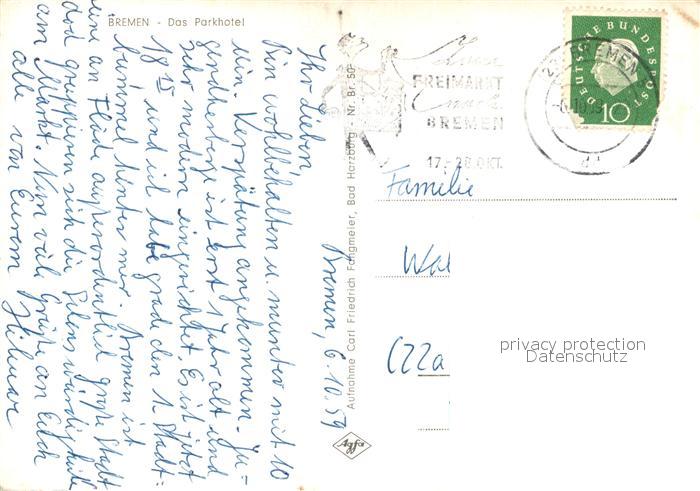 BREMEN - Das Parkhotel
Bremen, 6.10.59
Ihr Lieben
Bin wohlbehalten u. munter mit 10
min. Verspätung angekommen. Ju-
gendherberge ist erst 1 Jahr alt und
sehr modern eingerichtet. Es ist jetzt
18 15 und ich habe grade den 1. Stadt-
bummel hinter mir. Bremen ist
eine an Fläche außerordentlich große Stadt
doch gruppieren sich die
am Markt. Nun viele Grüße an Euch
alle von Eurem
Hilmar
Aufnahme Carl Friedrich Fangmeier, Bad Harzburg Nr. Br. 50
Agfa
FREIMARKT
BREMEN
17.-28.OKT.
BREMEN
DEUTSCHE BUNDESPOST
10
Familie
Wal
(22a
privacy protection
Datenschutz